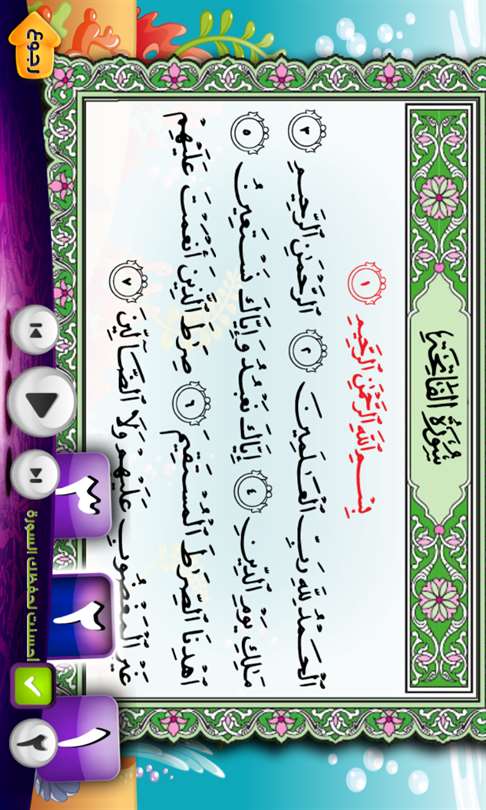 سُورَةُ الفَاتِحَةِ
بِسْمِ ٱللَّهِ ٱلرَّحْمَٰنِ ٱلرَّحِيمِ ١
ٱلْحَمْدُ لِلَّهِ رَبِّ ٱلْعَٰلَمِينَ ٢ ٱلرَّحْمَٰنِ ٱلرَّحِيمِ ٣
مَٰلِكِ يَوْمِ ٱلدِّينِ ٤ إِيَّاكَ نَعْبُدُ وَإِيَّاكَ نَسْتَعِينُ ٥
ٱهْدِنَا ٱلصِّرَٰطَ ٱلْمُسْتَقِيمَ ٦ صِرَٰطَ ٱلَّذِينَ أَنْعَمْتَ عَلَيْهِمْ
غَيْرِ ٱلْمَغْضُوبِ عَلَيْهِمْ وَلَا ٱلضَّآلِّينَ ٧
١ ٢ ٣
٢ أحسنت لحفظك السورة
رجوع